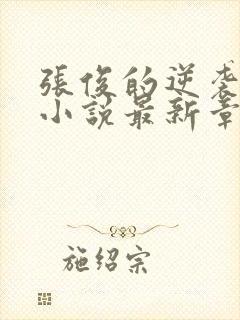 張俊的逆袭
小說最新章
施绍宗